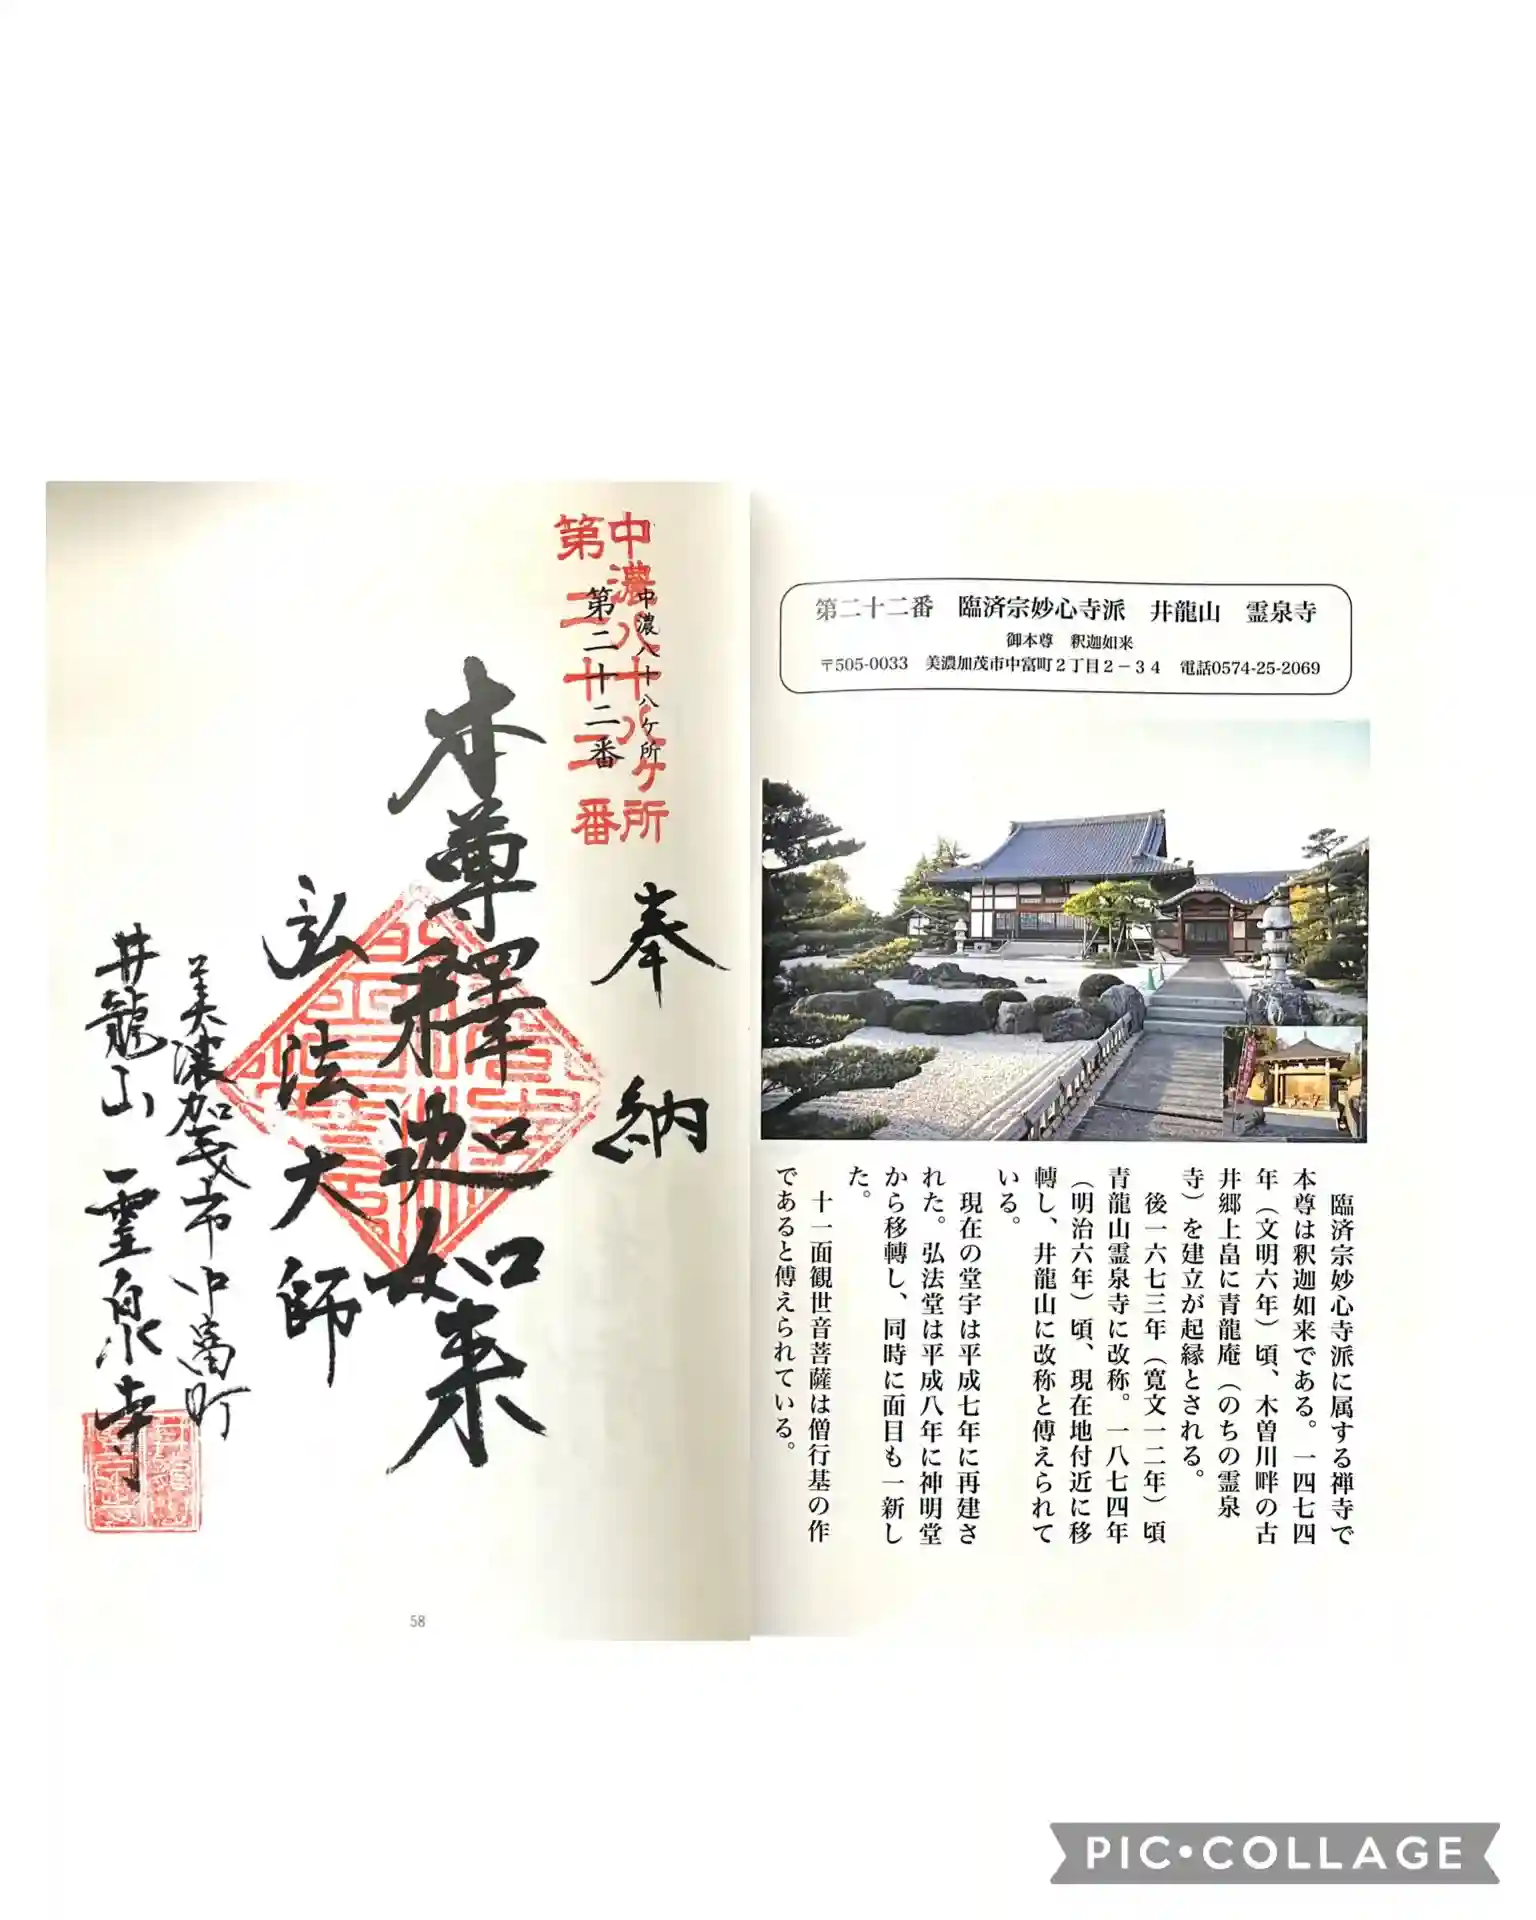 第二十二番　臨済宗妙心寺派　井龍山　霊泉寺
御本尊　釈迦如来
〒505-0033　美濃加茂市中富町２丁目２－３４　電話0574-25-2069
臨済宗妙心寺派に属する禅寺で
本尊は釈迦如来である。一四七四
年（文明六年）頃、木曽川畔の古
井郷上畠に青龍庵（のちの霊泉
寺）を建立が起縁とされる。
後一六七三年（寛文一二年）頃
青龍山霊泉寺に改称。一八七四年
（明治六年）頃、現在地付近に移
轉し、井龍山に改称と傳えられて
いる。
現在の堂宇は平成七年に再建さ
れた。弘法堂は平成八年に神明堂
から移轉し、同時に面目も一新し
た。
十一面観世音菩薩は僧行基の作
であると傅えられている。
中濃八十八ヶ所
第二十二番
中濃八十八ヶ所
第二十二番
奉納
本尊釋迦如来
弘法大師
美濃加茂市中富町
井龍山　霊泉寺
58
PIC•COLLAGE